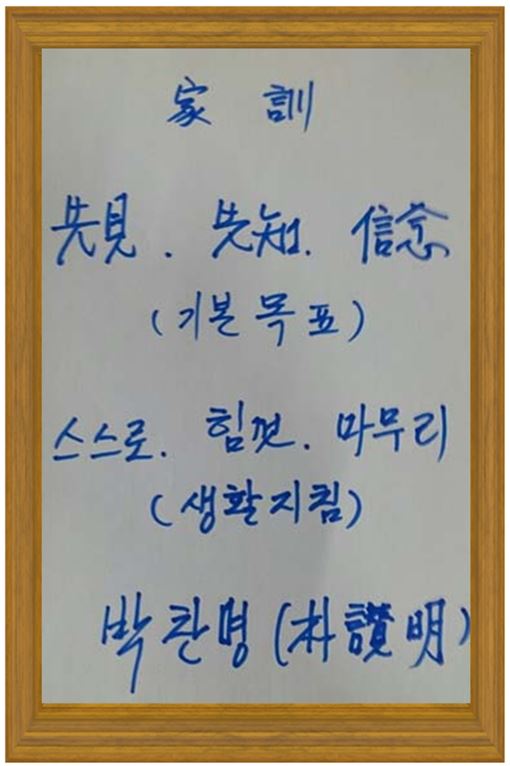 家 訓
先見. 先知. 信念
(기본목표)
스스로. 힘껏. 마무리
(생활지침)
박찬명(朴讚明)